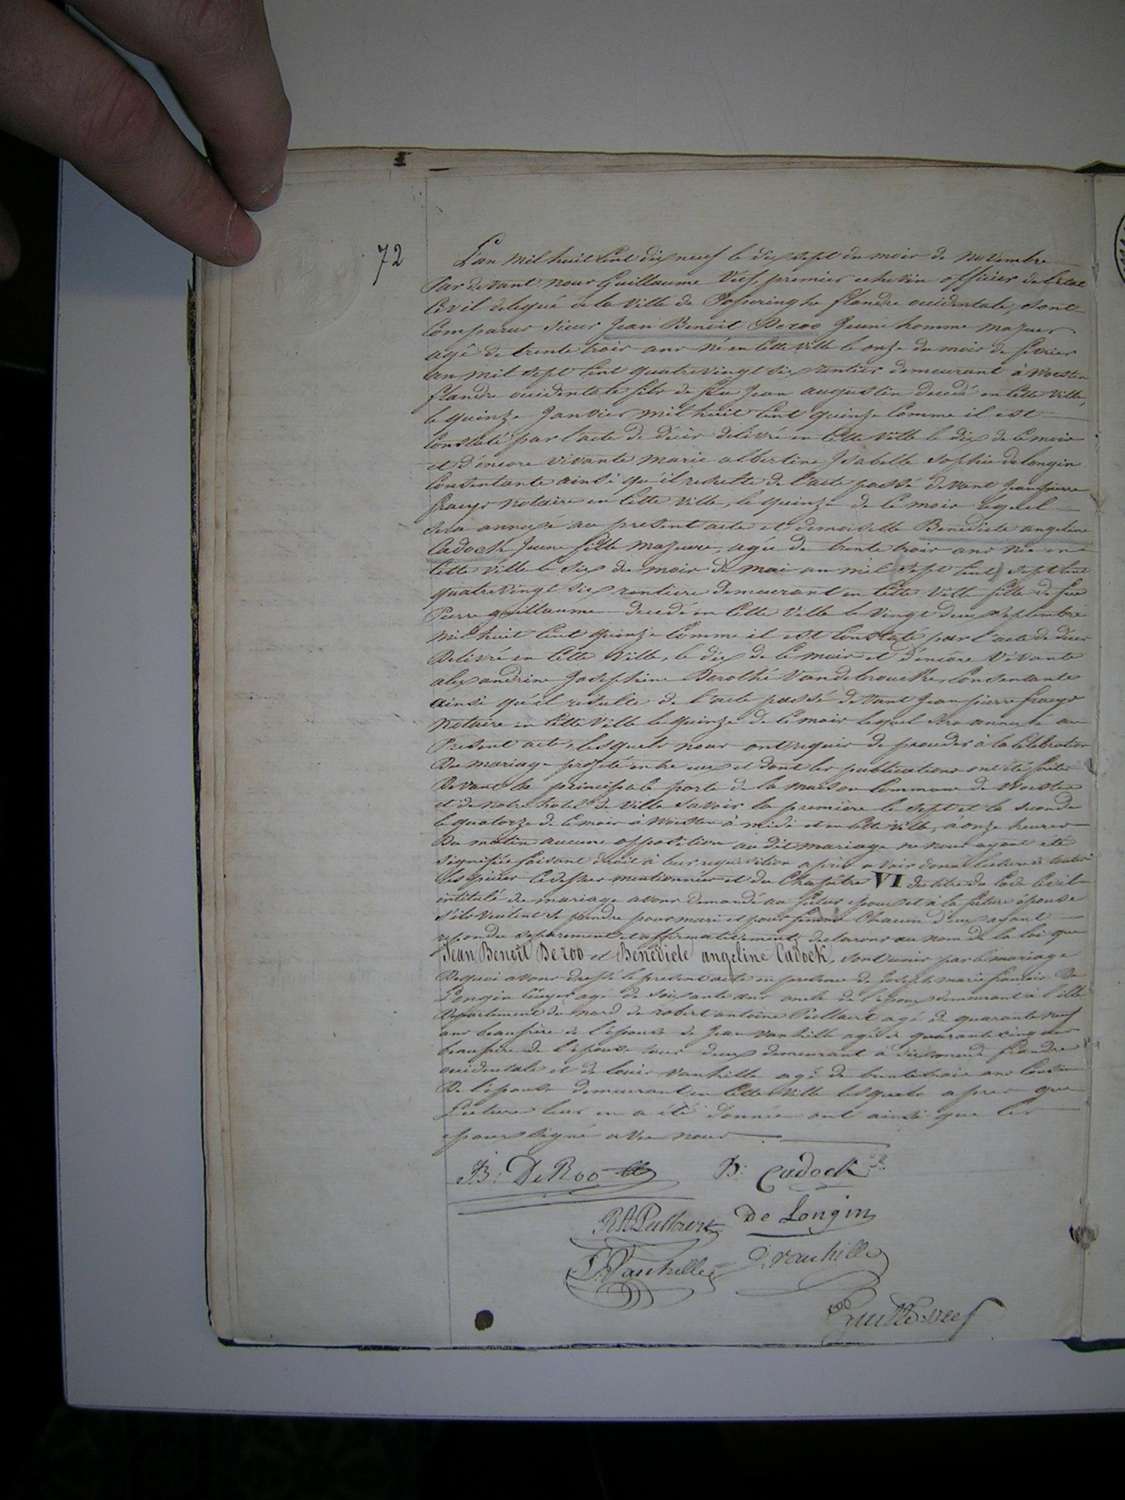 72
L'an mil huit cent dix neuf le dix sept du mois de novembre
Par devant nous Guillaume Vees premier echevin officier de l'etat
Civil delegué de la Ville de Poperinghe flandre occidentale, sont
Comparus sieur Jean Benoit De roo Jeune homme majeur
agé de trente trois ans né en cette Ville le onze du mois de fevrier
an mil sept cent quatre vingt six rentier demeurant à Woesten
flandre occidentale fils de feu Jean augustin decedé en cette Ville,
le quinze Janvier mil huit cent quinze comme il est
Constaté par l'acte de décès delivré en cette Ville le dix de ce mois
et d'encore vivante marie albertine Isabelle Sophie de longin
Consentante ainsi qu'il resulte de l'acte passé devant Jean pierre
notaire en cette Ville, le quinze de ce mois lequel
sera annexé au present acte et demoiselle Benedicte angeline
Cadock Jeune fille majeure, agée de trente trois ans née en
cette Ville le six du mois de mai an mil sept cent sept cent
quatre vingt six rentiere demeurant en cette Ville fille de feu
Pierre guillaume decedé en cette Ville le Vingt deux septembre
mil huit cent quinze comme il est Constaté par l'acte de décès
Delivré en cette Ville, le dix de ce mois et d'encore Vivante
alexandrine Josephine Dorothé Vandebrouck, Consentante
ainsi qu'il resulte de l'acte passé devant Jean pierre
Notaire en cette Ville le quinze de ce mois lequel sera annexé au
Present acte, lesquels nous ont requis de proceder à la Celebration
Du mariage projeté entre eux et dont les publications ont été faites
Devant la principale porte de la maison Commune de Woesten
et de notre hotel de Ville savoir la premiere le sept et la seconde
le quatorze de ce mois à Woesten à midi et en cette Ville, à onze heures
Du matin aucune opposition au dit mariage ne nous ayant été
signifiée faisant droit à leur requisition après avoir donné lecture de toutes
les pieces ci dessus mentionnées et du Chapitre VI du titre du Code Civil
intitulé du mariage avons demandé au futur epoux et à la future épouse
s'ils veulent se prendre pour mari et pour femme Chacun d'eux ayant
repondu separement et affirmativement, declarons au nom de la loi que
Jean Benoit De roo et Benedicte angeline Cadock, sont unis par le mariage
De quoi avons dressé le present acte en presence de Joseph marie francois De
Longin agé de soixante ans oncle de l'epoux demeurant à
departement du nord de robert antoine Pullaert agé de quarante neuf
ans beaufrere de l'epouse de Jean Vanhille agé de quarante cinq ans
beaufrere de l'epouse tous deux demeurant à flandre
occidentale et de louis Vanhille agé de trente trois ans Cousin
De l'epouse demeurant en cette Ville lesquels après que
Lecture leur en a été donnée ont ainsi que les
epoux signé avec nous
JB: De Roo B: Cadock
RA Pullaert De Longin
J Vanhille L: vanhille
Guill. vees